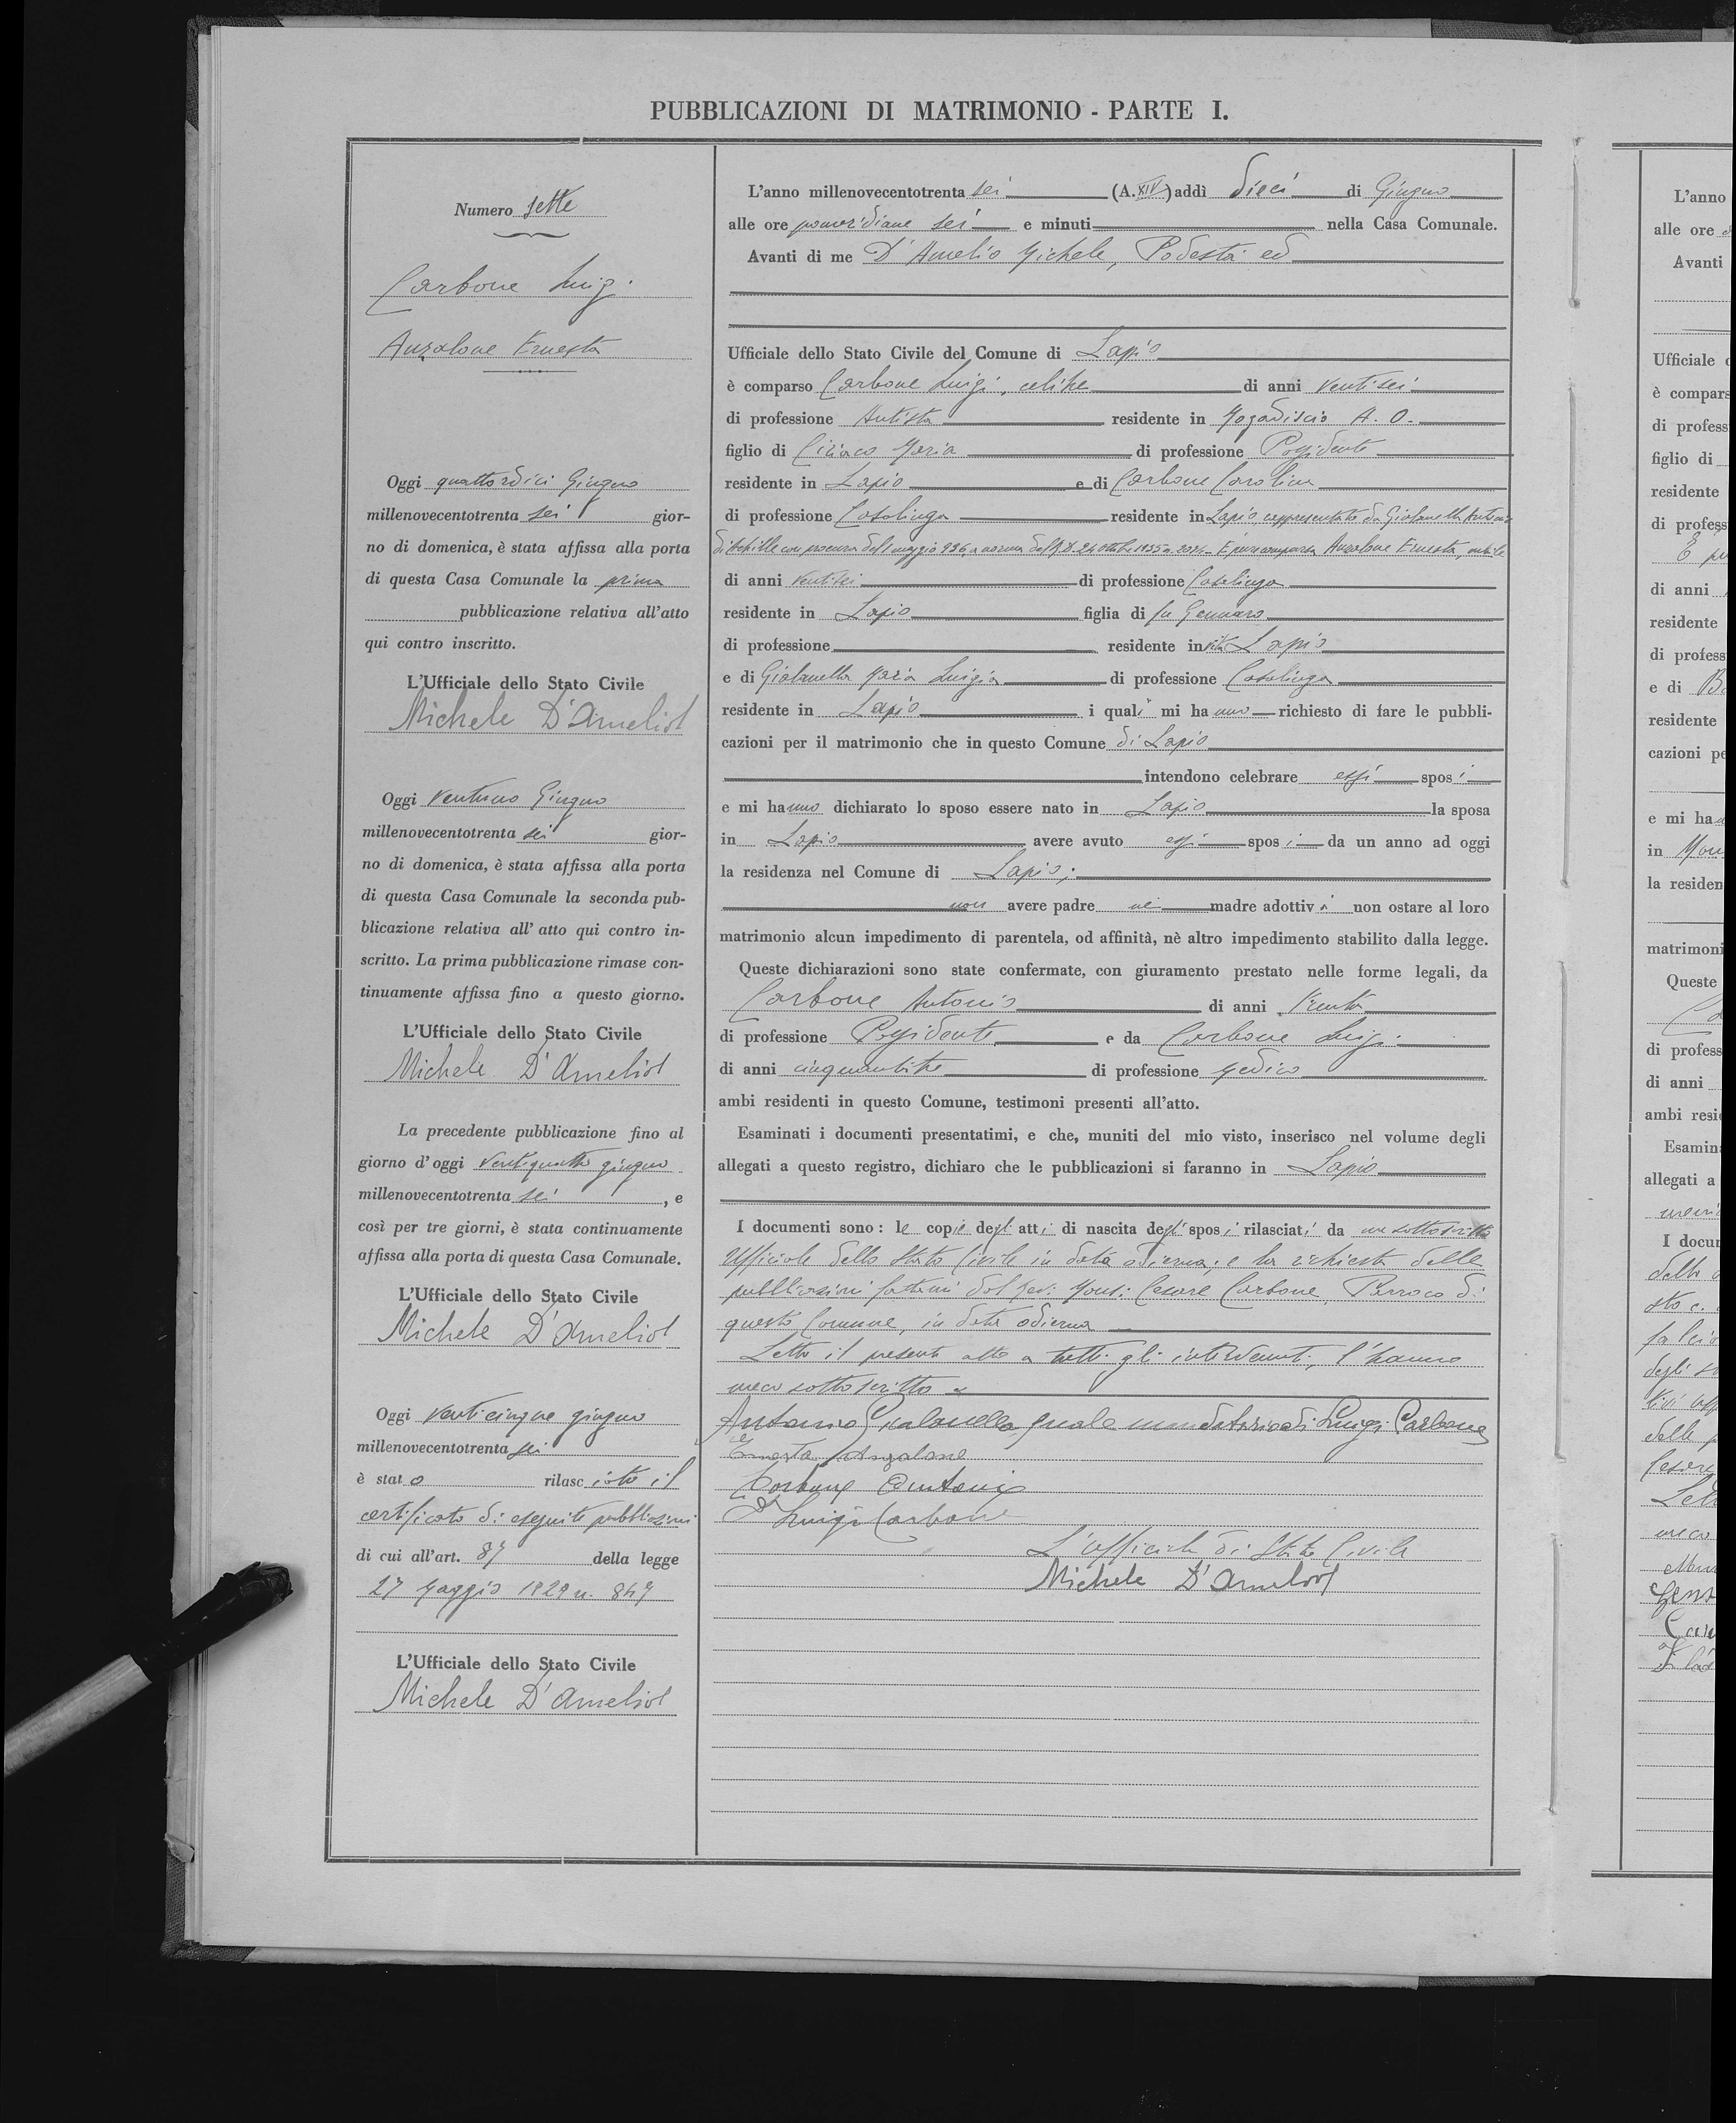 PUBBLICAZIONI DI MATRIMONIO - PARTE I.
Numero sette
Carbone Luigi
Anzalone Ernesta
Oggi quattordici Giugno
millenovecentotrenta sei gior-
no di domenica, è stata affissa alla porta
di questa Casa Comunale la prima
pubblicazione relativa all'atto
qui contro inscritto.
L'Ufficiale dello Stato Civile
Michele D'Amelio
Oggi ventuno Giugno
millenovecentotrenta sei gior-
no di domenica, è stata affissa alla porta
di questa Casa Comunale la seconda pub-
blicazione relativa all' atto qui contro in-
scritto. La prima pubblicazione rimase con-
tinuamente affissa fino a questo giorno.
L'Ufficiale dello Stato Civile
Michele D'Amelio
La precedente pubblicazione fino al
giorno d'oggi ventiquattro giugno
millenovecentotrenta sei , e
così per tre giorni, è stata continuamente
affissa alla porta di questa Casa Comunale.
L'Ufficiale dello Stato Civile
Michele D'Amelio
Oggi venticinque giugno
millenovecentotrenta sei
è stato rilasciato il
certificato di eseguite pubblicazioni
di cui all'art. 87 della legge
27 Maggio 1929 n. 847
L'Ufficiale dello Stato Civile
Michele D'Amelio
L'anno millenovecentotrenta sei (A. XIV) addì dieci di Giugno
alle ore pomeridiane sei e minuti nella Casa Comunale.
Avanti di me D'Amelio Michele, Podestà ed
Ufficiale dello Stato Civile del Comune di Lapio
è comparso Carbone Luigi, celibe di anni ventisei
di professione Autista residente in Mogadiscio A. O.
figlio di Ciriaco Maria di professione Possidente
residente in Lapio e di Carbone Carolina
di professione Casalinga residente in Lapio, rappresentato da Giolanella Antonio
di Achille con procura dell' maggio 936, a norma del R.D. 24 ottobre 1935 n. 2014 - È pure comparsa Anzalone Ernesta, nubile
di anni ventisei di professione Casalinga
residente in Lapio figlia di fu Gennaro
di professione residente in vita Lapio
e di Giolanella Maria Luigia di professione Casalinga
residente in Lapio i quali mi hanno richiesto di fare le pubbli-
cazioni per il matrimonio che in questo Comune di Lapio
intendono celebrare essi sposi
e mi hanno dichiarato lo sposo essere nato in Lapio la sposa
in Lapio avere avuto essi sposi da un anno ad oggi
la residenza nel Comune di Lapio;
non avere padre nè madre adottivi non ostare al loro
matrimonio alcun impedimento di parentela, od affinità, nè altro impedimento stabilito dalla legge.
Queste dichiarazioni sono state confermate, con giuramento prestato nelle forme legali, da
Carbone Antonio di anni trenta
di professione Possidente e da Carbone Luigi
di anni cinquantatre di professione Medico
ambi residenti in questo Comune, testimoni presenti all'atto.
Esaminati i documenti presentatimi, e che, muniti del mio visto, inserisco nel volume degli
allegati a questo registro, dichiaro che le pubblicazioni si faranno in Lapio
I documenti sono: le copie degli atti di nascita degli sposi rilasciati da me sottoscritto
Ufficiale dello Stato Civile in data odierna; e la richiesta delle
pubblicazioni fattami dal Rev. Mons. Cesare Carbone, Parroco di
questo Comune, in data odierna
Letto il presente atto a tutti gli intervenuti, l'hanno
meco sottoscritto
Antonio Giolanella quale mandatario di Luigi Carbone
Ernesta Anzalone
Carbone Antonio
Dr Luigi Carbone
L'Ufficiale di Stato Civile
Michele D'Amelio
L'anno
alle ore
Avanti
Ufficiale
è compars
di profess
figlio di
residente
di profess
di anni
residente
di profess
e di
residente
cazioni pe
e mi ha
in
la residen
matrimoni
Queste
di profess
di anni
ambi resi
Esamin
allegati a
I docum